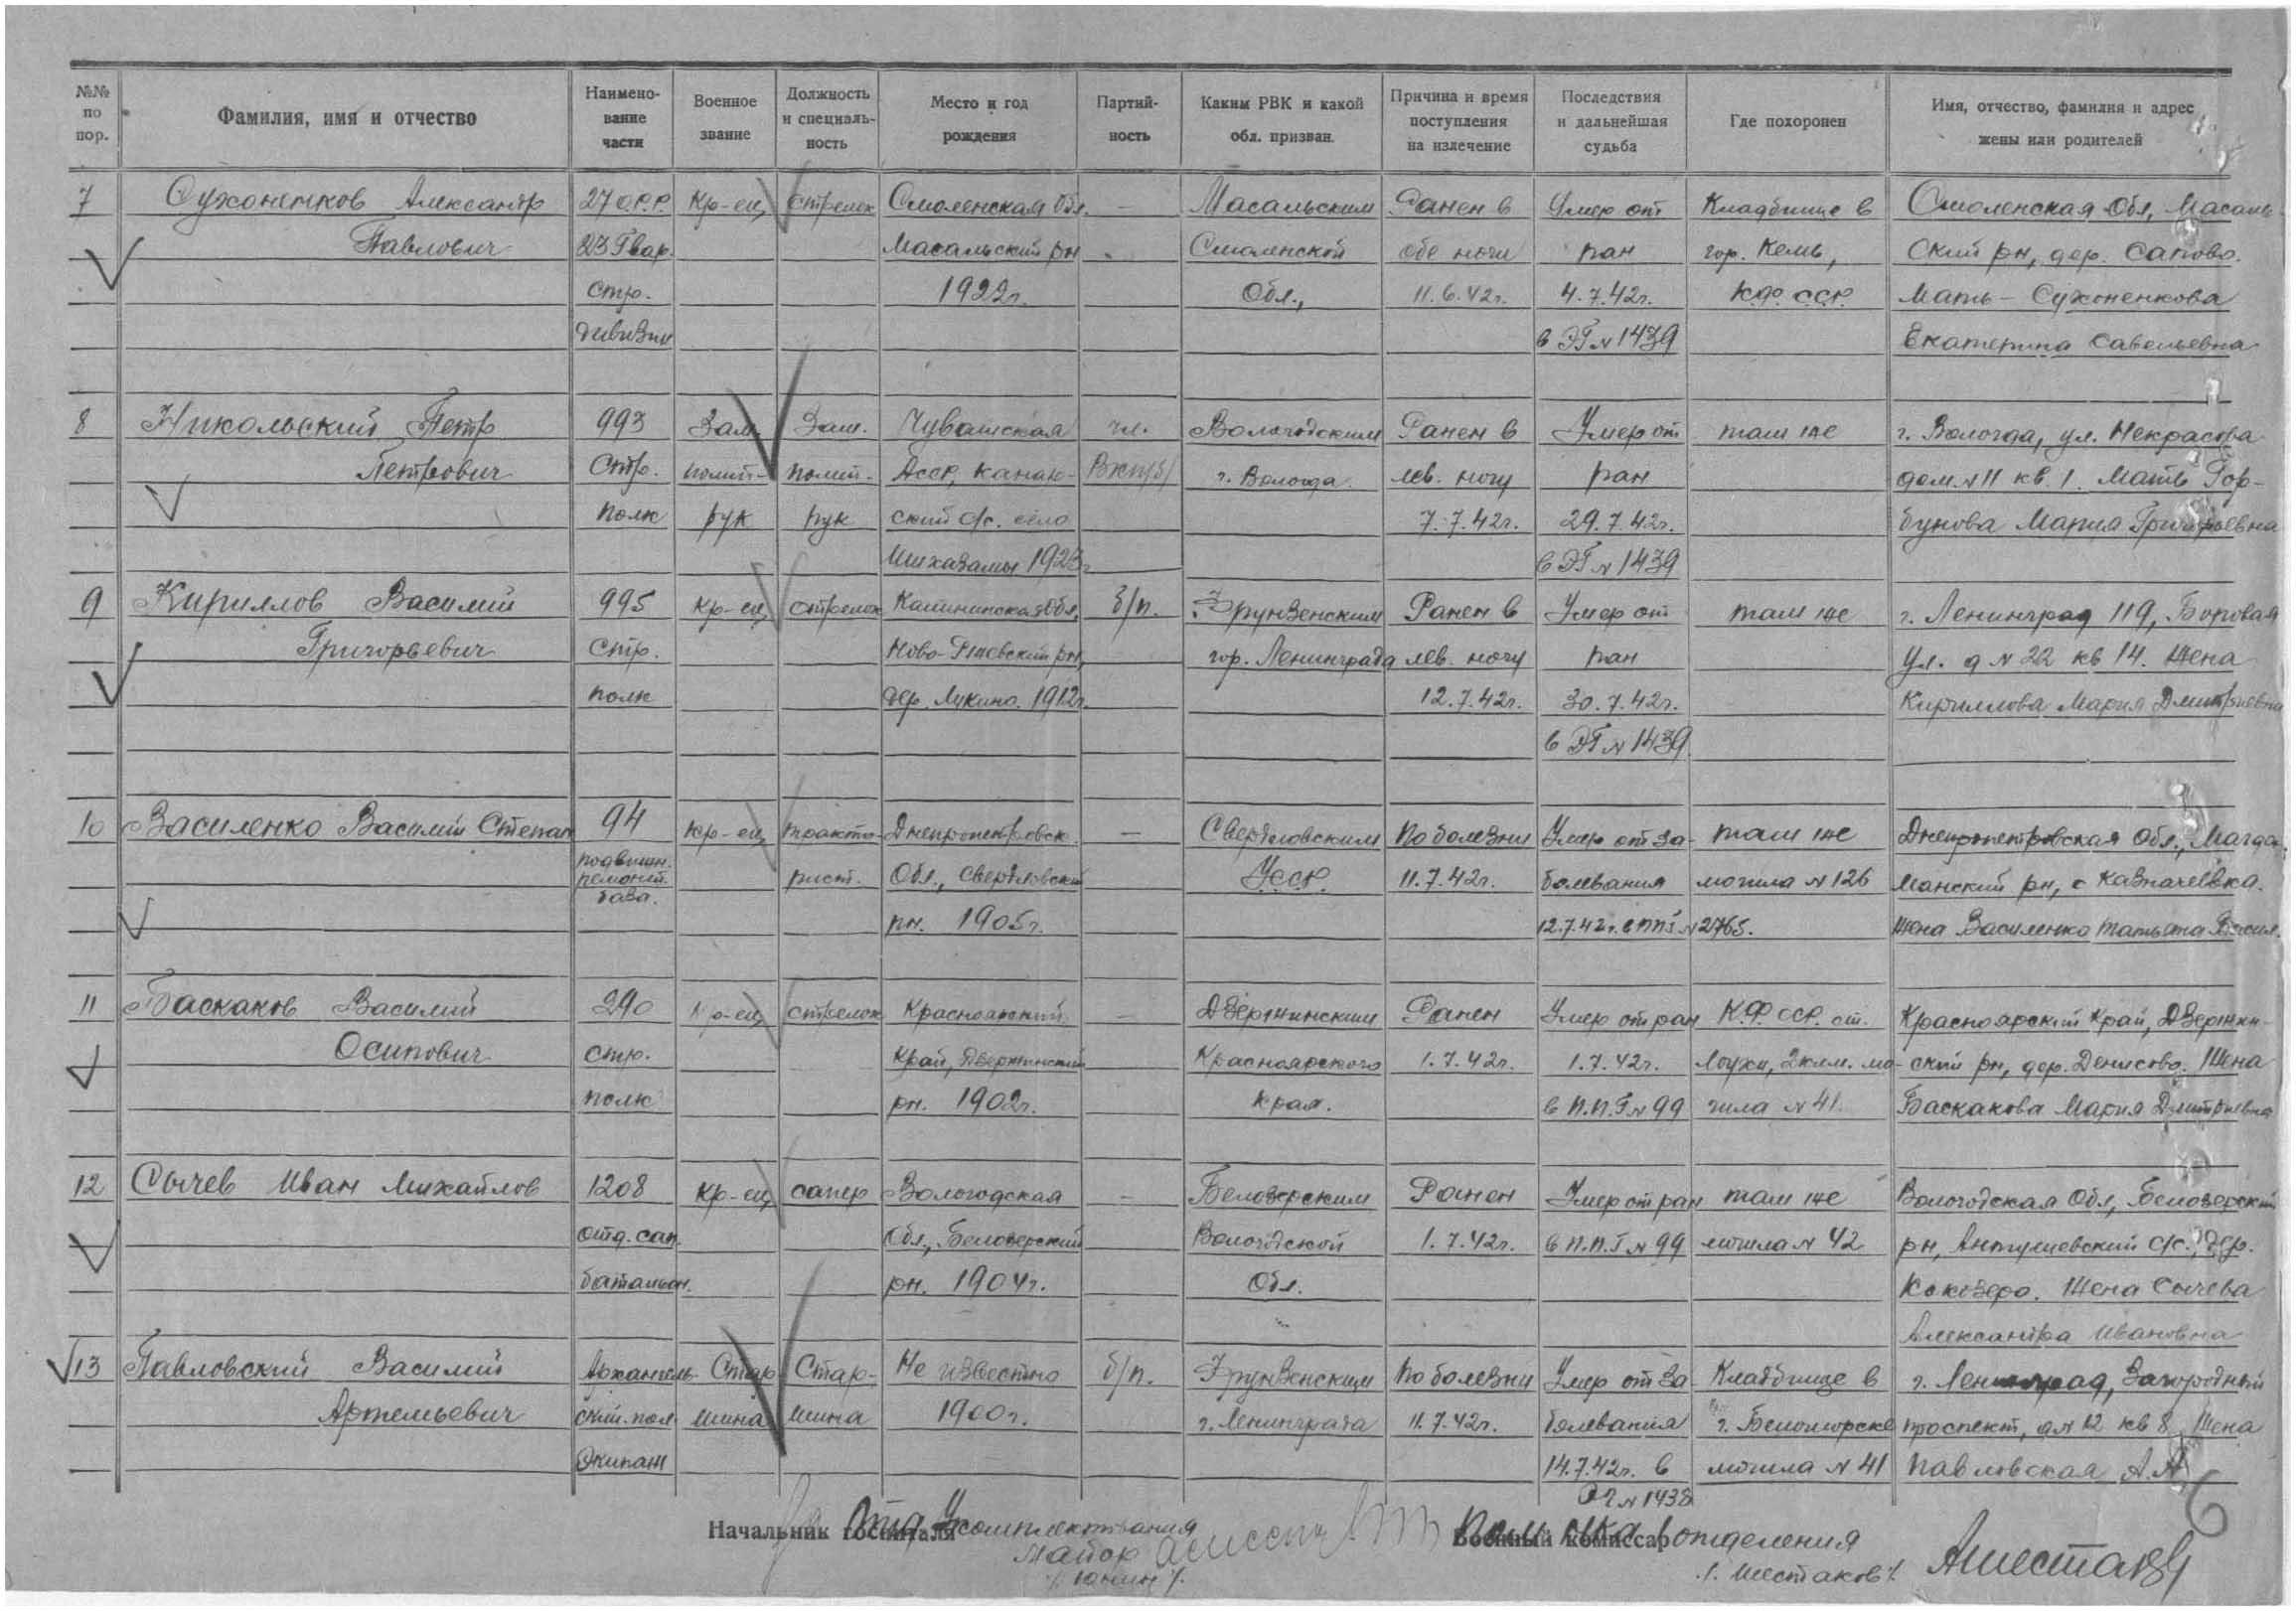 №№ по пор.
Фамилия, имя и отчество
Наимено-вание части
Военное звание
Должность и специаль-ность
Место и год рождения
Партий-ность
Каким РВК и какой обл. призван.
Причина и время поступления на излечение
Последствия и дальнейшая судьба
Где похоронен
Имя, отчество, фамилия и адрес жены или родителей
7 Сухоненков Александр 27 О.Р.Р. Кр-ец стрелок Смоленская Обл. — Масальским Ранен в Умер от Кладбище в Смоленская Обл, Масаль-
Павлович 23 Гвар. Масальский рн Смоленской обе ноги ран гор. Кемь, ский рн, дер. Сапово.
стр. 1922г. Обл., 11.6.42г. 4.7.42г. К.Ф.С.С.Р. Мать - Сухоненкова
дивизии в ЭГ N 1439 Екатерина Савельевна
8 Никольский Петр 993 Зам. Зам. Чувашская чл. Вологодским Ранен в Умер от там же г. Вологда, ул. Некрасова
Петрович Стр. полит- полит- Асср, Канаш- ВКП/б/ г. Вологда. лев. ногу ран дом. N 11 кв. 1. Мать Гор-
полк рук рук ский с/с. село 7.7.42г. 29.7.42г. бунова Мария Григорьевна
Шихазаны 1923г. в ЭГ N 1439
9 Кириллов Василий 995 Кр-ец стрелок Калининская Обл, б/п. Фрунзенским Ранен в Умер от там же г. Ленинград 119, Боровая
Григорьевич Стр. Ново-Ржевский рн, гор. Ленинграда лев. ногу ран ул. д N 22 кв 14. Жена
полк дер. Лукино. 1912г. 12.7.42г. 30.7.42г. Кириллова Мария Дмитриевна
в ЭГ N 1439.
10 Василенко Василий Степан 94 Кр-ец тракто- Днепропетровск. — Свердловским По болезни Умер от за- там же Днепропетровская Обл., Магда-
подвижн. ремонт. база. рист. Обл., Свердловский Усср. 11.7.42г. болевания могила N 126 линский рн, с Казначеевка.
рн. 1905г. 12.7.42г. в ППГ N 2765. Жена Василенко Татьяна Васил.
11 Баскаков Василий 290 Кр-ец стрелок Красноярский — Дзержинским Ранен Умер от ран К.Ф.ССР. ст. Красноярский Край, Дзержин-
Осипович стр. Край, Дзержинский Красноярского 1.7.42г. 1.7.42г. Лоухи, 2 клм. мо- ский рн, дер. Денисово. Жена
полк рн. 1902г. Края. в П.П.Г N 99 гила N 41. Баскакова Мария Дмитриевна
12 Сычев Иван Михайлов 1208 Кр-ец сапер Вологодская — Белозерским Ранен Умер от ран там же Вологодская Обл, Белозерский
отд. сап. Обл., Белозерский Вологодской 1.7.42г. в П.П.Г N 99 могила N 42 рн, Антушевский с/с., дер.
батальон. рн. 1904г. Обл. Кокозеро. Жена Сычева
Александра Ивановна
13 Павловский Василий Архангель- Стар Стар- Не известно б/п. Фрунзенским По болезни Умер от за- Кладбище в г. Ленинград, Загородный
Артемьевич ский. пол шина шина 1900г. г. Ленинграда 11.7.42г. болевания г. Беломорске проспект, д N 12 кв 8, Жена
Экипаж 14.7.42г. в могила N 41 Павловская А.А
ЭГ N 1438
Начальник госпиталя Отд Укомплектования
Майор
/. Юнин /.
Военный комиссар Пом Нка 1 отделения
/. Шестаков /. АШестаков
6